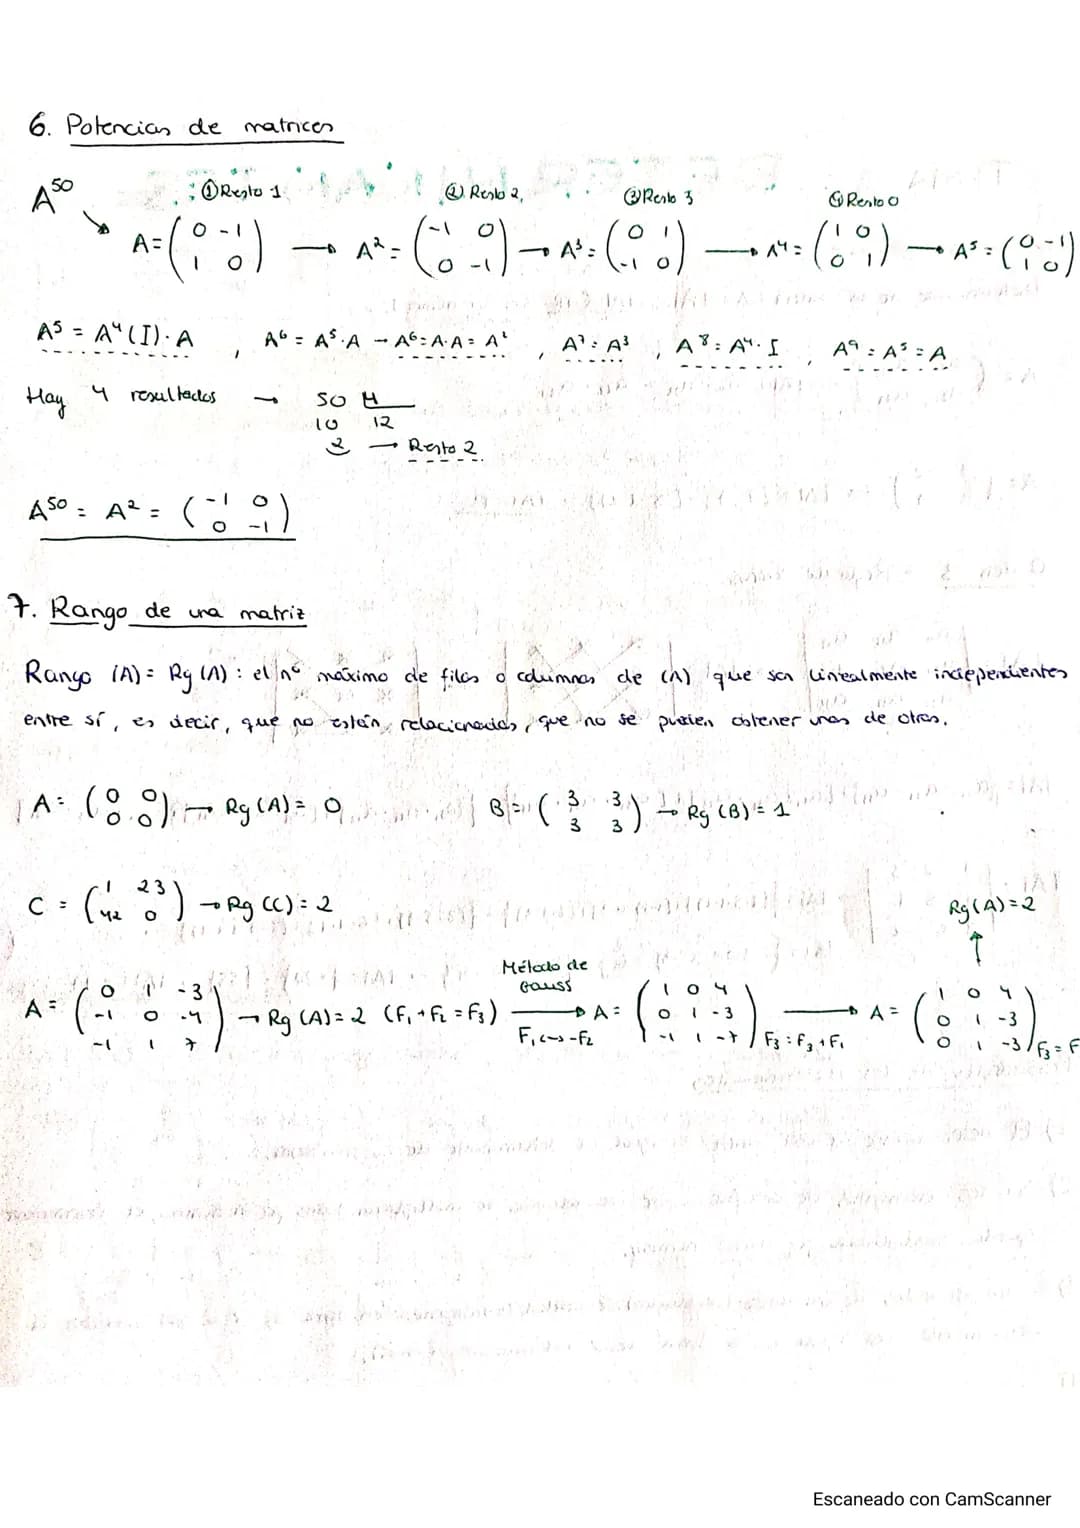 6. Potencias de matrices
A^50
① Resto 1   ② Resto 2,   ③ Resto 3   ④ Resto 0
A = (0 -1 / 1 0) → A² = (-1 0 / 0 -1) → A³ = (0 1 / -1 0) → A⁴ = (1 0 / 0 1) → A⁵ = (0 -1 / 1 0)
A⁵ = A⁴(I)·A , A⁶ = A⁵·A → A⁶ = A·A = A² , A⁷ = A³ , A⁸ = A⁴·I , A⁹ = A⁵ = A
Hay 4 resultados → 50 4
10 12
2 → Resto 2
A^50 = A² = (-1 0 / 0 -1)
7. Rango de una matriz
Rango (A) = Rg (A) : el nº máximo de filas o columnas de (A) que son linealmente independientes
entre sí, es decir, que no están relacionadas, que no se pueden obtener unas de otras.
A = (0 0 / 0 0) → Rg (A) = 0   B = (3 3 / 3 3) → Rg (B) = 1
C = (1 23 / 42 0) → Rg (C) = 2
Rg (A) = 2
↑
Método de
Gauss
A = (0 1 -3 / -1 0 -4 / -1 1 7) → Rg (A) = 2 (F₁ + F₂ = F₃) → A = (1 0 4 / 0 1 -3 / -1 1 -7) → A = (1 0 4 / 0 1 -3 / 0 1 -3)
F₁ ↔ -F₂   F₃ = F₃ + F₁   F₃ = F
Escaneado con CamScanner